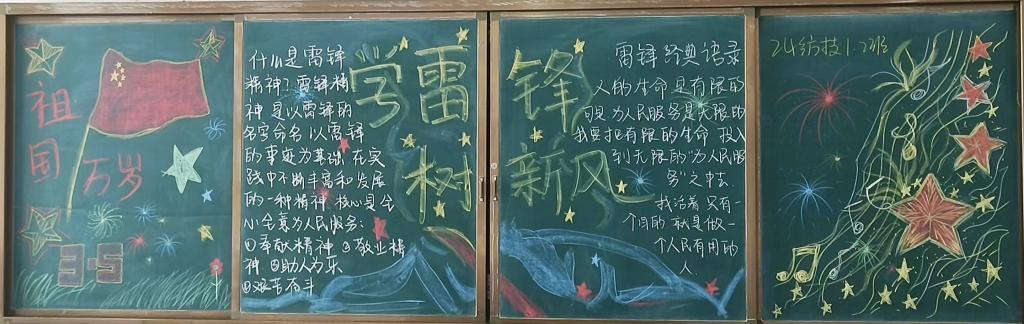 祖国
万岁
3·5
什么是雷锋
精神?雷锋精
神是以雷锋的
名字命名以雷锋
的事迹为基础在实
践中不断丰富和发展
的一种精神 核心是全
心全意为人民服务:
①奉献精神 ②敬业精
神 ③助人为乐
④艰苦奋斗
学雷锋
树新风
雷锋经典语录
人的生命是有限的
可是为人民服务是无限的
我要把有限的生命 投入
到无限的“为人民服
务”之中去.
我活着 只有一
个目的 就是做一
个人民有用的
人
24纺技1·2班